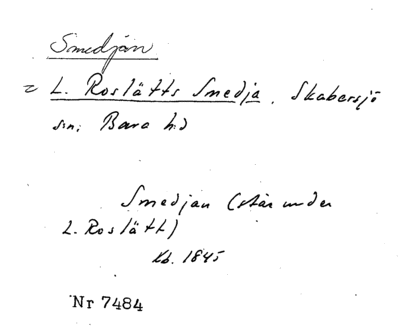 Smedjan
= L. Roslätts Smedja, Skabersjö
sn; Bara hd
Smedjan (står under
L. Roslätt)
Kb. 1845
Nr 7484